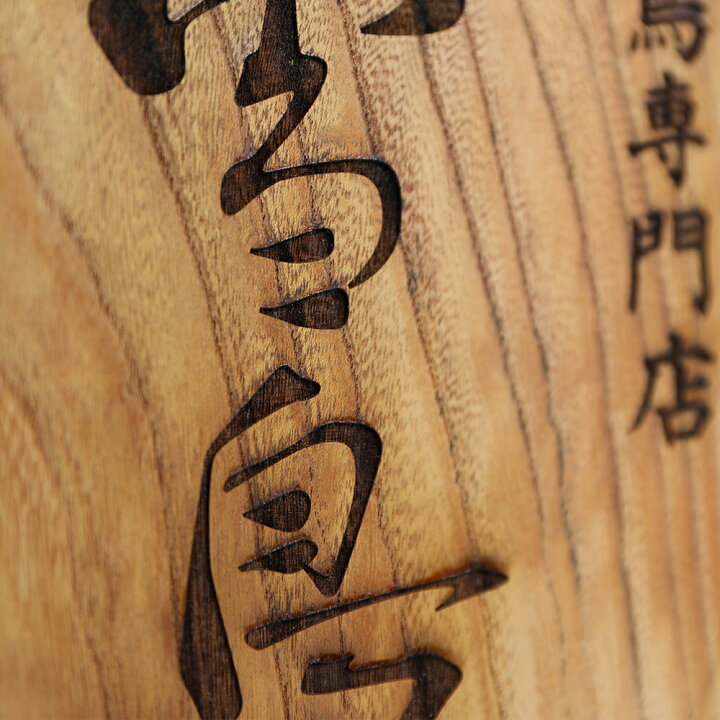 鳥専門店
鳥